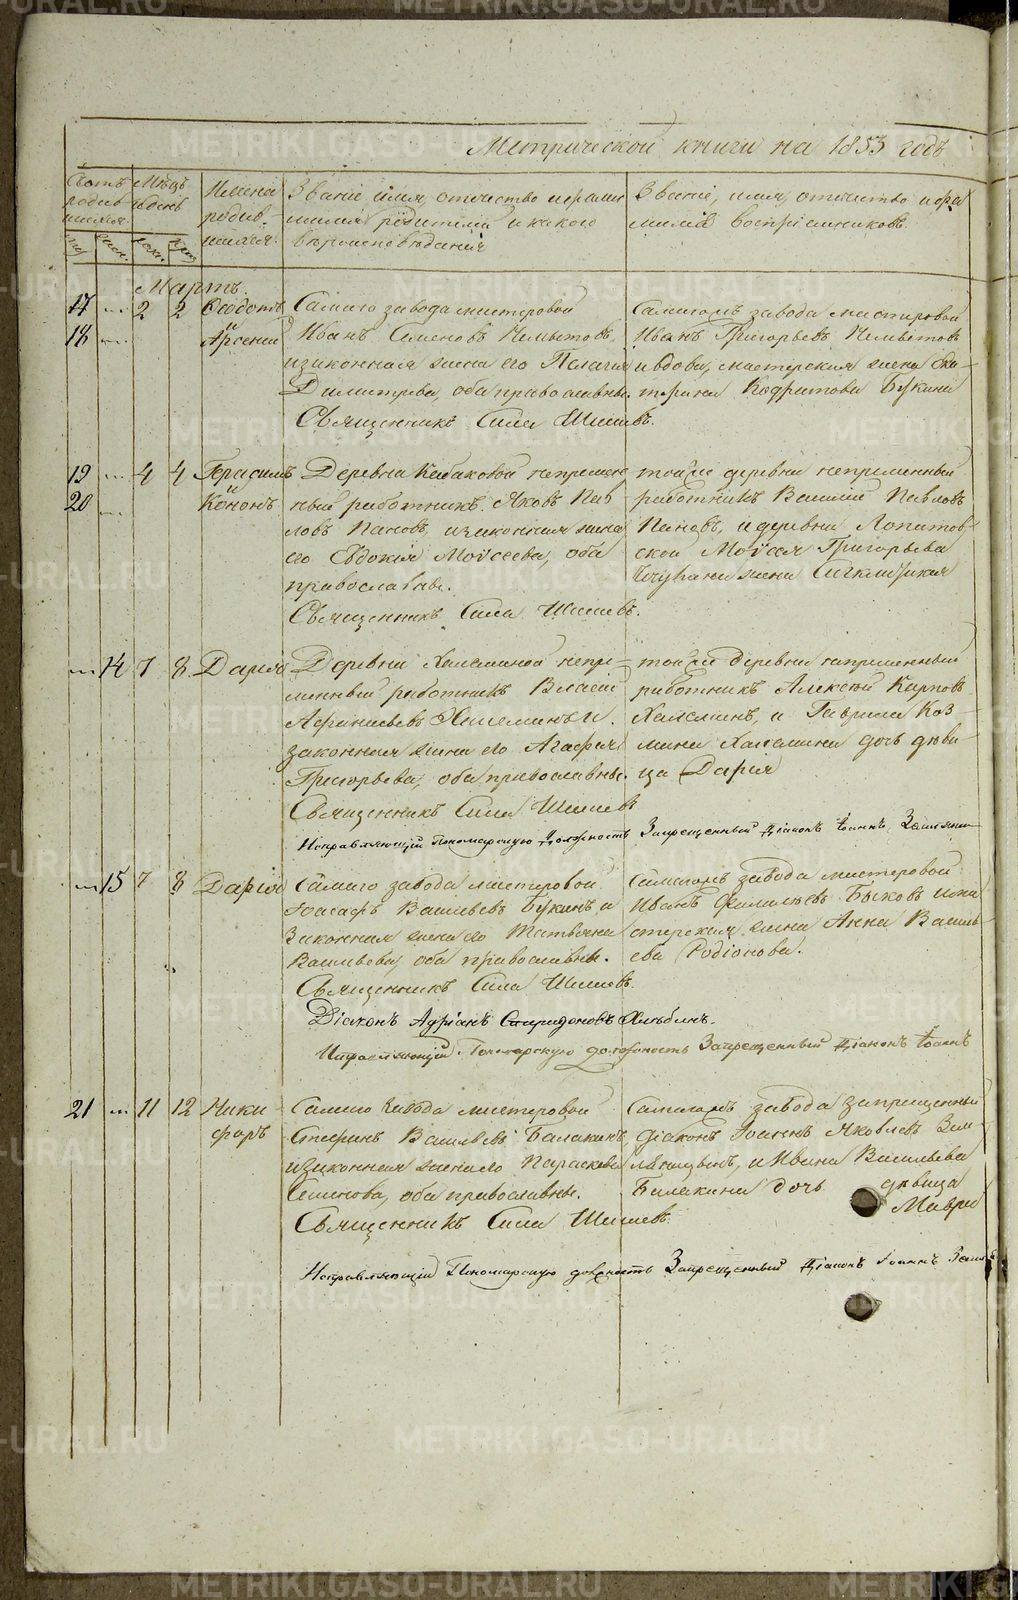 Метрической книги на 1853 годъ
Счетъ родив шихся.
муж. женс.
Мѣсцъ и день
рожд. крещ.
Имена родив шихся.
Званіе, имя, отчество и фами
милія родителей и какого
вѣроисповѣданія
Званіе, имя, отчество и фа
милія воспріемниковъ.
Мартъ.
17 — 2 2 Ѳеодотъ
18 — и Арсеній
Самаго завода мастеровой
Иванъ Семеновъ Чемытовъ,
и законная жена его Пелагия
Димитрiева, оба православные.
Священникъ Сила Шишевъ.
Самагожъ завода мастеровой
Иванъ Григорьевъ Чемытовъ
и вдова, мастерская жена Ека
терина Букина
19 — 4 4 Герасимъ
20 — и Кононъ
Деревни Кабаковой непремен
ный работникъ Яковъ Пав
ловъ Пановъ, и законная жена
его Евдокія Моѵсеева, оба
православные.
Священникъ Сила Шишевъ.
тойже деревни непременный
работникъ Василій Павловъ
Пановъ, и деревни
ской Моѵсея Григорьева
жена
— 14 7 8 Дарія
Деревни Халеминой непре-
менный работникъ Власій
Афанасьевъ Халеминъ и
законная жена его Агафия
Григорьева, оба православные.
Священникъ Сила Шишевъ
тойже деревни непременный
работникъ Алексѣй Карповъ
Халеминъ, и Гаврила Коз-
мина Халемина дочь дѣви
ца Дарія
Исправляющий Пономарскую Должность Запрещенный Діаконъ Іоаннъ
— 15 7 8 Дарія
Самаго завода мастеровой
Іоасафъ Васильевъ Букинъ и
Законная жена его Татьяна
Васильева, оба православные.
Священникъ Сила Шишевъ.
Самагожъ завода мастеровой
Иванъ Быковъ и ма
стерская жена Анна Василь
ева Родіонова.
Діаконъ Адріанъ Спиридоновъ Хлѣбинъ.
Исправляющий Пономарскую должность Запрещенный Діаконъ Іоаннъ
21 — 11 12 Ники
форъ
Самаго завода мастеровой
Стефанъ Васильевъ Балакинъ,
и законная жена его Параскева
Семенова, оба православные.
Священникъ Сила Шишевъ.
Самагожъ завода запрещенный
діаконъ Іоаннъ Яковлевъ Зем-
и Ивана Васильева
Балакина дочь дѣвица
Мавра
Исправляющий Пономарскую должность Запрещенный Діаконъ Іоаннъ
METRIKI.GASO-URAL.RU